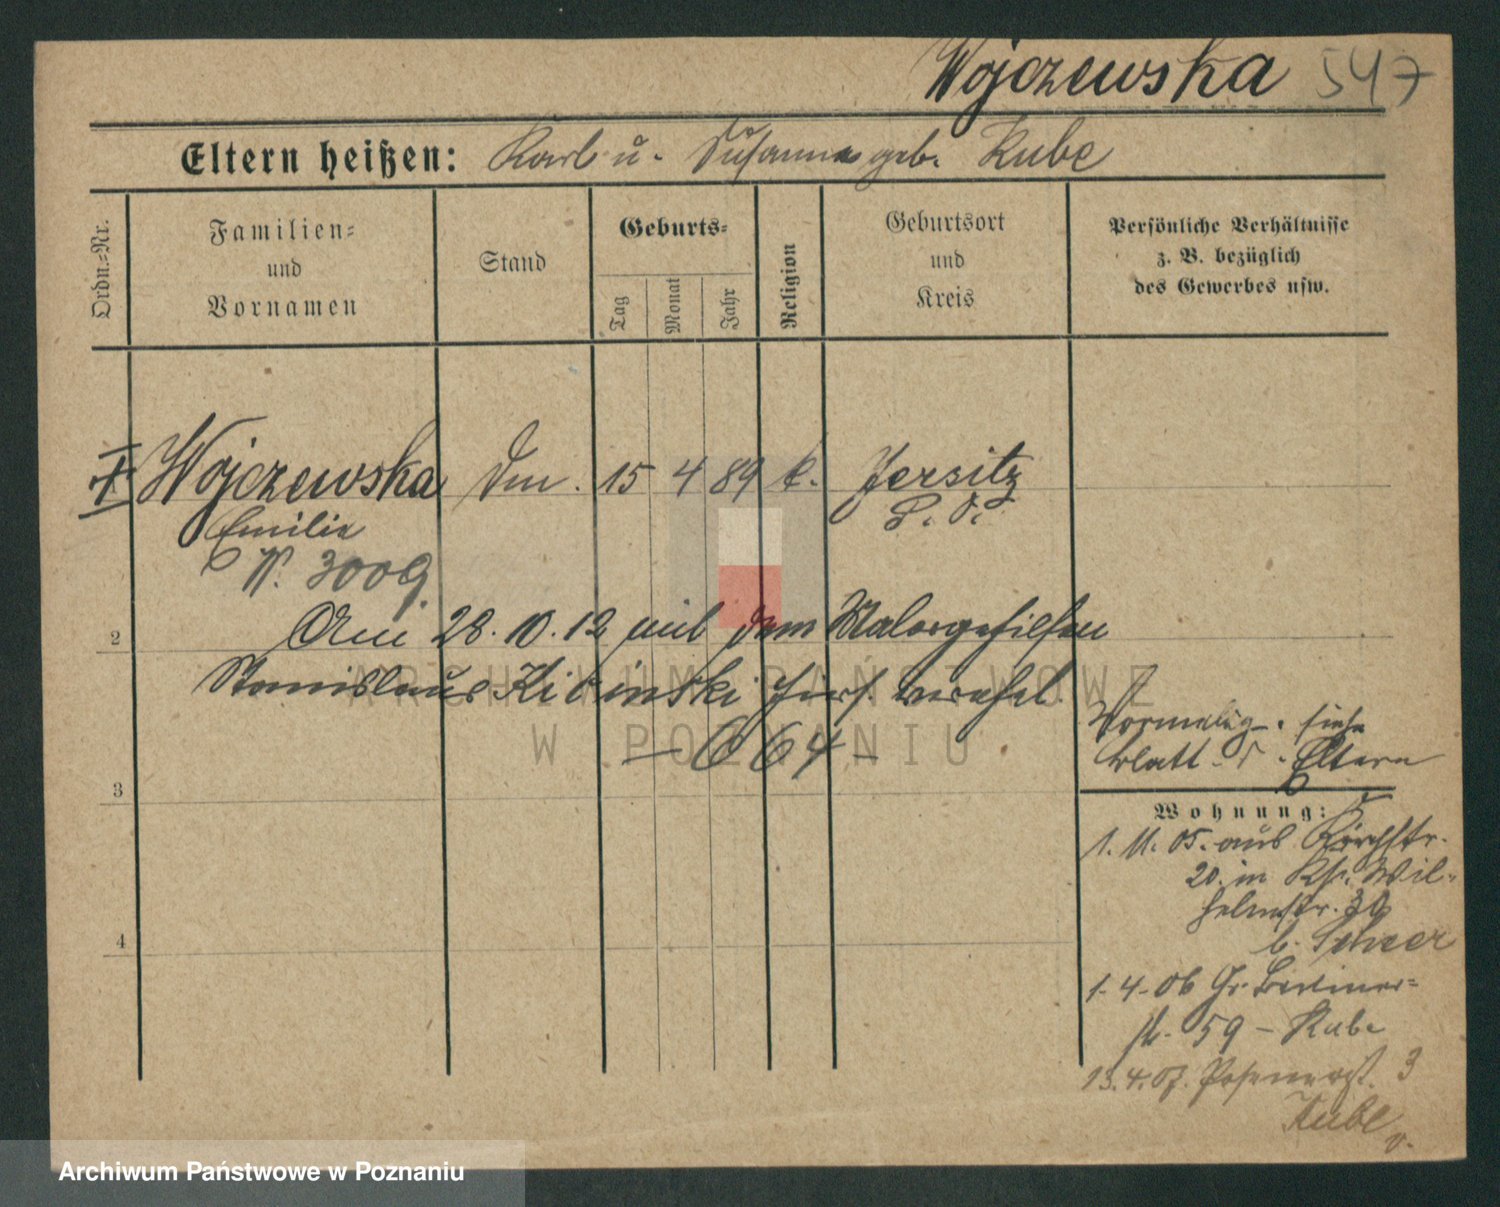 Wojczewska 547
Eltern heißen: Karl u. Susanna geb. Kube
Ordn.-Nr.
Familien-
und
Vornamen
Stand
Geburts-
Tag
Monat
Jahr
Religion
Geburtsort
und
Kreis
Persönliche Verhältnisse
z. B. bezüglich
des Gewerbes usw.
Wojczewska 15 4 89 k. Jersitz
Emilie P. O.
W. 3009.
2 Am 28.10.12 mit dem Malergehilfen
Stanislaus hier verehel.
– 664 –
Vormalig. siehe
blatt d. Eltern
3
Wohnung:
1. 11. 05. aus
20. in Wil-
helmstr. 30
b. Scheer
4
1-4-06 Gr. Berliner-
str. 59 – Kube
13.4.07. Posenerst. 3
Kube
v.
ARCHIWUM PAŃSTWOWE
W POZNANIU
Archiwum Państwowe w Poznaniu